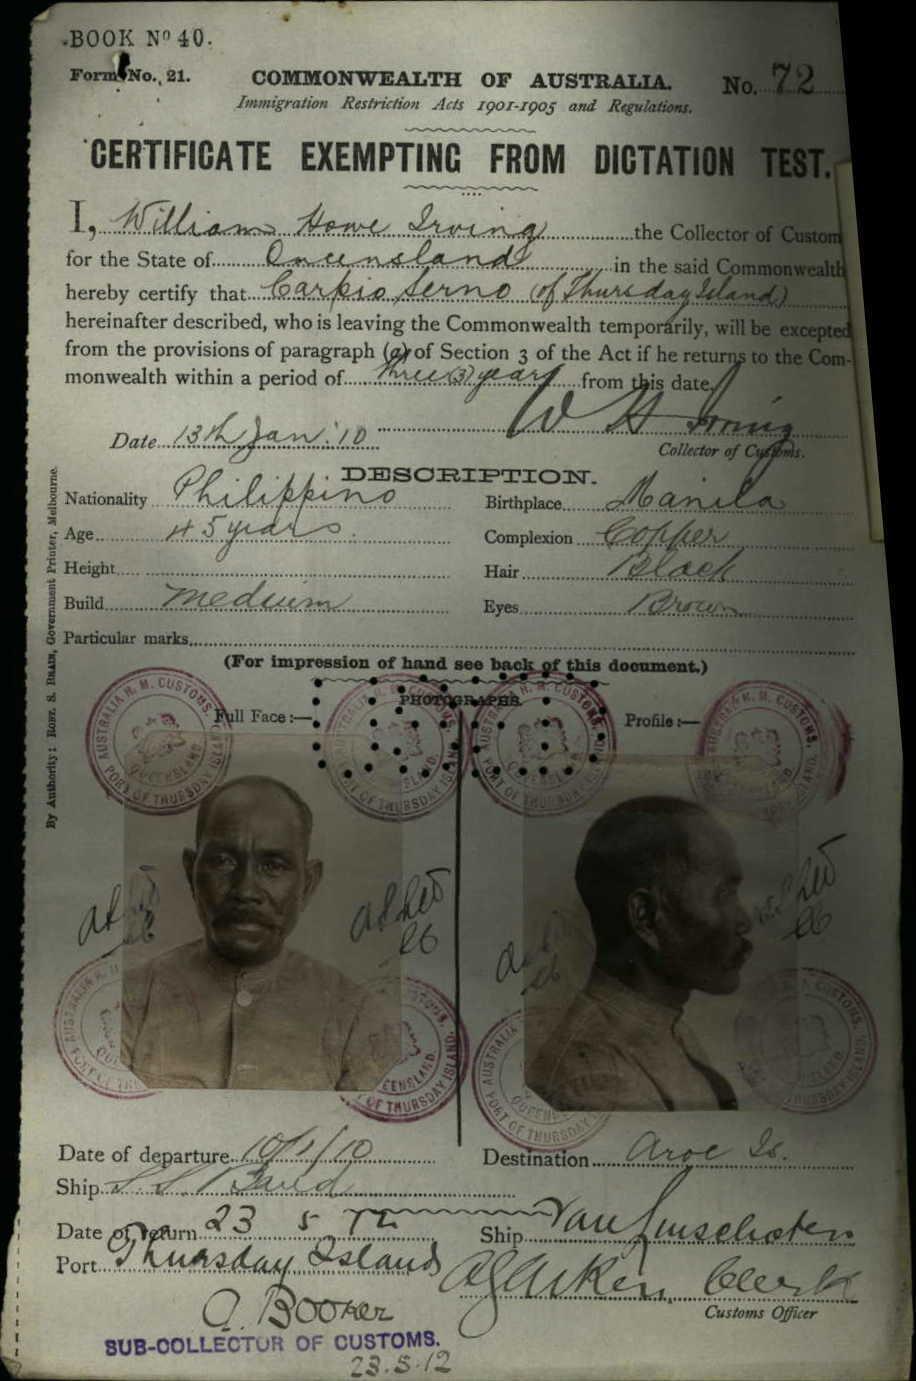 BOOK Nº 40.
Form No. 21.
COMMONWEALTH OF AUSTRALIA.
No. 72
Immigration Restriction Acts 1901-1905 and Regulations.
CERTIFICATE EXEMPTING FROM DICTATION TEST.
I, William Howe Irving the Collector of Custom
for the State of Queensland in the said Commonwealth
hereby certify that Carpio Serno (of Thursday Island)
hereinafter described, who is leaving the Commonwealth temporarily, will be excepted
from the provisions of paragraph (a) of Section 3 of the Act if he returns to the Com-
monwealth within a period of three (3) years from this date.
W H Irving
Date 13th Jan. '10
Collector of Customs.
DESCRIPTION.
Nationality Philippino
Birthplace Manila
Age 45 years
Complexion Copper
Height
Hair Black
Build Medium
Eyes Brown
Particular marks
(For impression of hand see back of this document.)
PHOTOGRAPHS.
Full Face:—
Profile:—
AUSTRALIA H. M. CUSTOMS.
QUEENSLAND
PORT OF THURSDAY ISLAND.
By Authority: ROBT. S. BRAIN, Government Printer, Melbourne.
Date of departure 10/1/10
Destination Aroe Is.
Ship S.S.
Date of return 23 5 12
Ship Van Linschoten
Port Thursday Island
Clerk
Customs Officer
SUB-COLLECTOR OF CUSTOMS.
23.5.12